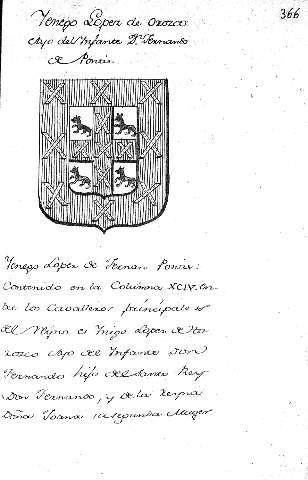 366
Yenego Lopez de Orozco
Ayo del Infante Dn. Fernando
de Pontis.
Yenego Lopez de Fernan Pontis:
Contenido en la Columna XCIV. en-
tre los Cavalleros principales
del Reyno es Ynigo Lopez de
rozco Ayo del Infante Don
Fernando hijo del Santo Rey
Don Fernando, y de la Reyna
Doña Juana su segunda Muger